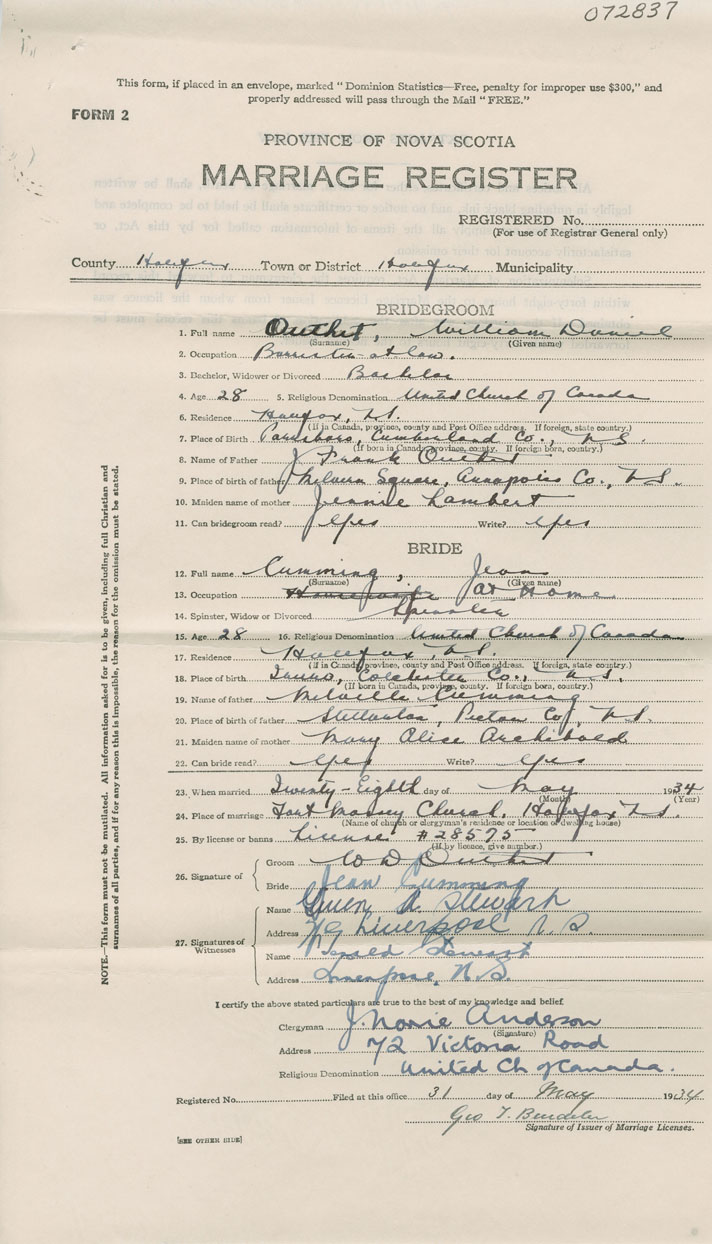 072837
This form, if placed in an envelope, marked "Dominion Statistics—Free, penalty for improper use $300," and
properly addressed will pass through the Mail "FREE."
FORM 2
PROVINCE OF NOVA SCOTIA
MARRIAGE REGISTER
REGISTERED No.
(For use of Registrar General only)
County Halifax Town or District Halifax Municipality
BRIDEGROOM
1. Full name Outhit, William Daniel
(Surname) (Given name)
2. Occupation Barrister-at-law.
3. Bachelor, Widower or Divorced Bachelor
4. Age 28 5. Religious Denomination United Church of Canada
6. Residence Halifax, N.S.
(If in Canada, province, county and Post Office address. If foreign, state country.)
7. Place of Birth Parrsboro, Cumberland Co., N.S.
(If born in Canada, province, county. If foreign born, country.)
8. Name of Father J. Frank Outhit
9. Place of birth of father Melvern Square, Annapolis Co., N.S.
10. Maiden name of mother Jeannie Lambert
11. Can bridegroom read? Yes Write? Yes
BRIDE
12. Full name Cumming, Jean
(Surname) (Given name)
13. Occupation At Home
14. Spinster, Widow or Divorced Spinster
15. Age 28 16. Religious Denomination United Church of Canada
17. Residence Halifax, N.S.
(If in Canada, province, county and Post Office address. If foreign, state country.)
18. Place of birth Truro, Colchester Co., N.S.
(If born in Canada, province, county. If foreign born, country.)
19. Name of father Melville Cumming
20. Place of birth of father Stellarton, Pictou Co., N.S.
21. Maiden name of mother Mary Alice Archibald
22. Can bride read? Yes Write? Yes
23. When married Twenty-Eighth day of May 1934
(Month) (Year)
24. Place of marriage Fort Massey Church, Halifax N.S.
(Name of church or clergyman's residence or location of dwelling house)
25. By license or banns License #28575
(If by licence, give number.)
26. Signature of
Groom W D Outhit
Bride Jean Cumming
27. Signatures of
Witnesses
Name Gwen Stewart
Address Liverpool N.S.
Name Stewart
Address N.S.
I certify the above stated particulars are true to the best of my knowledge and belief.
Clergyman J. Norrie Anderson
(Signature)
Address 72 Victoria Road
Religious Denomination United Ch of Canada.
Registered No. Filed at this office 31 day of May 1934
Geo T.
Signature of Issuer of Marriage Licenses.
[SEE OTHER SIDE]
NOTE.—This form must not be mutilated. All information asked for is to be given, including full Christian and
surnames of all parties, and if for any reason this is impossible, the reason for the omission must be stated.